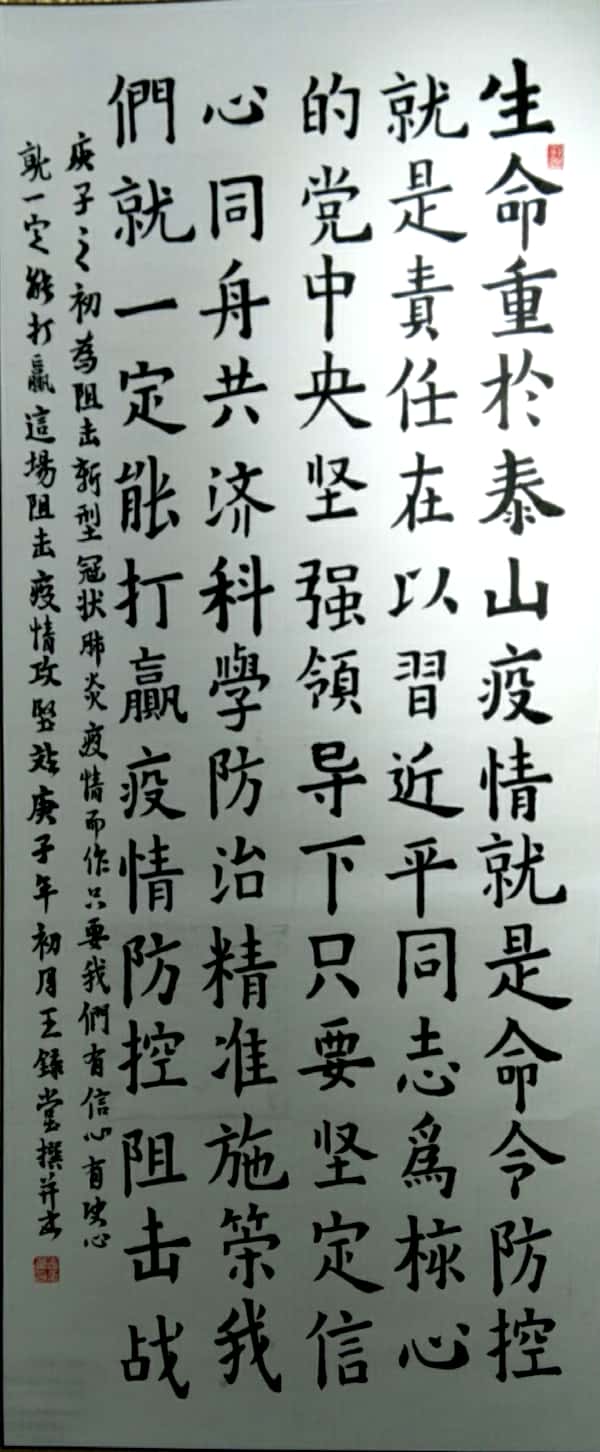 生命重於泰山疫情就是命令防控
就是責任在以習近平同志為核心
的党中央坚强領导下只要坚定信
心同舟共济科學防治精准施策我
們就一定能打贏疫情防控阻击战
庚子之初為阻击新型冠状肺炎疫情而作只要我們有信心有决心
就一定能打贏這場阻击疫情攻堅战庚子年初月王錄堂撰并书